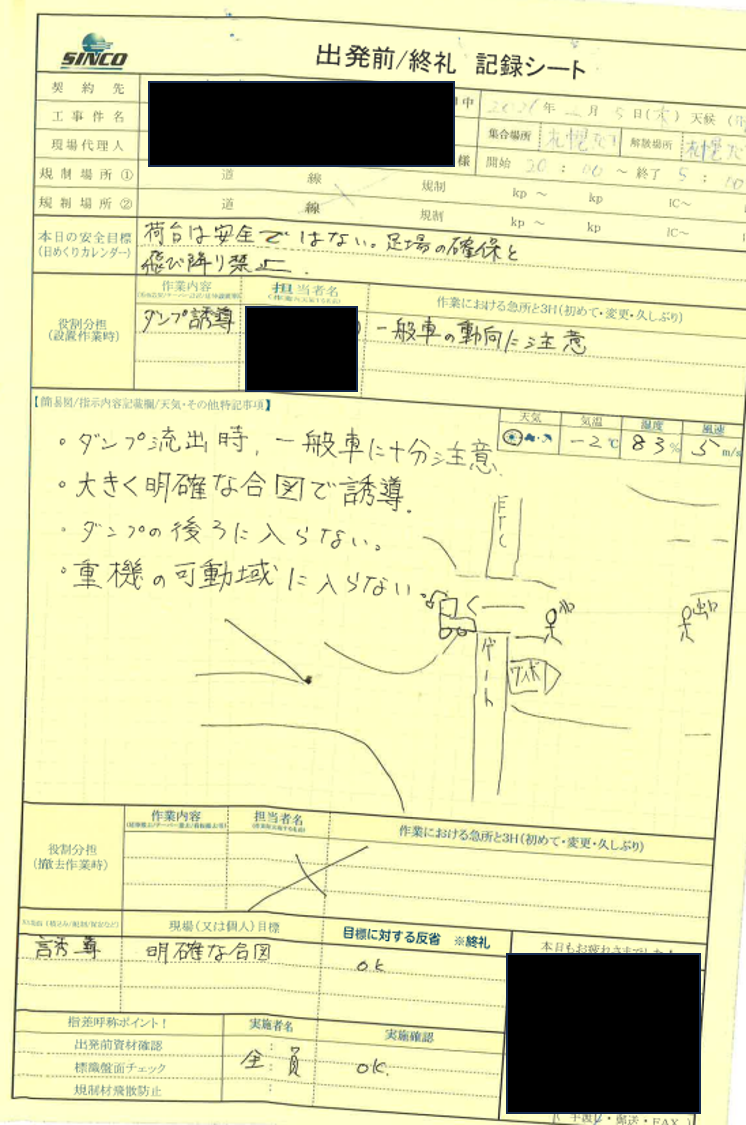 SINCO
出発前/終礼 記録シート
契約先
工事件名
現場代理人
中
年 月 5日(木) 天候
集合場所 札幌 解散場所 札幌
様 開始 20:00 ～ 終了 5:00
規制場所① 道 線 規制 kp ～ kp IC～
規制場所② 道 線 規制 kp ～ kp IC～
本日の安全目標
(日めくりカレンダー)
荷台は安全ではない。足場の確保と
飛び降り禁止
役割分担
(設置作業時)
作業内容 担当者名 作業における急所と3H(初めて・変更・久しぶり)
ダンプ誘導 一般車の動向に注意
【簡易図/指示内容記載欄/天気・その他特記事項】
天気 気温 湿度 風速
-2℃ 83% 5m/s
・ダンプ流出時、一般車に十分注意
・大きく明確な合図で誘導.
・ダンプの後ろに入らない。
・重機の可動域に入らない。
ETC
出口
ゲート
役割分担
(撤去作業時)
作業内容 担当者名 作業における急所と3H(初めて・変更・久しぶり)
現場(又は個人)目標 目標に対する反省 ※終礼
本日もお疲れさまでした!
誘導 明確な合図 ok
指差呼称ポイント! 実施者名 実施確認
出発前資材確認
標識盤面チェック 全員 OK.
規制材飛散防止
・郵送・FAX)